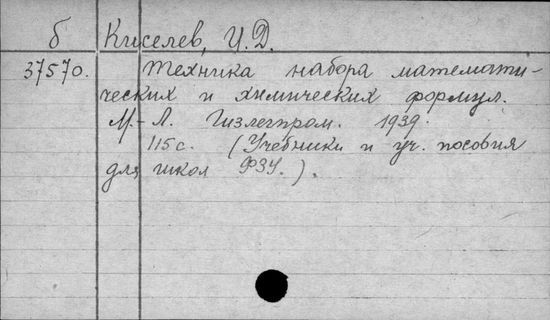 б Киселев, И.Д.
37570. Техника набора математи-
ческих и химических формул.
М.-Л. Гизлегпром. 1939.
115 с. (Учебники и уч. пособия
для школ ФЗУ.).